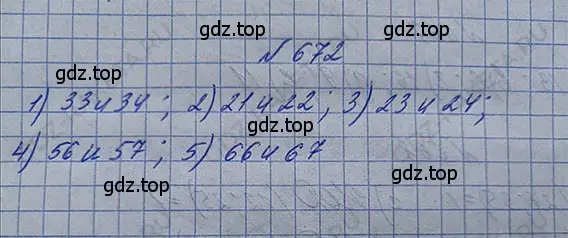 gdz.top
№ 672
gdz.top
1) 33 и 34 ; 2) 21 и 22 ; 3) 23 и 24 ;
gdz.top
gdz.top
4) 56 и 57 ; 5) 66 и 67
gdz.top
gdz.top